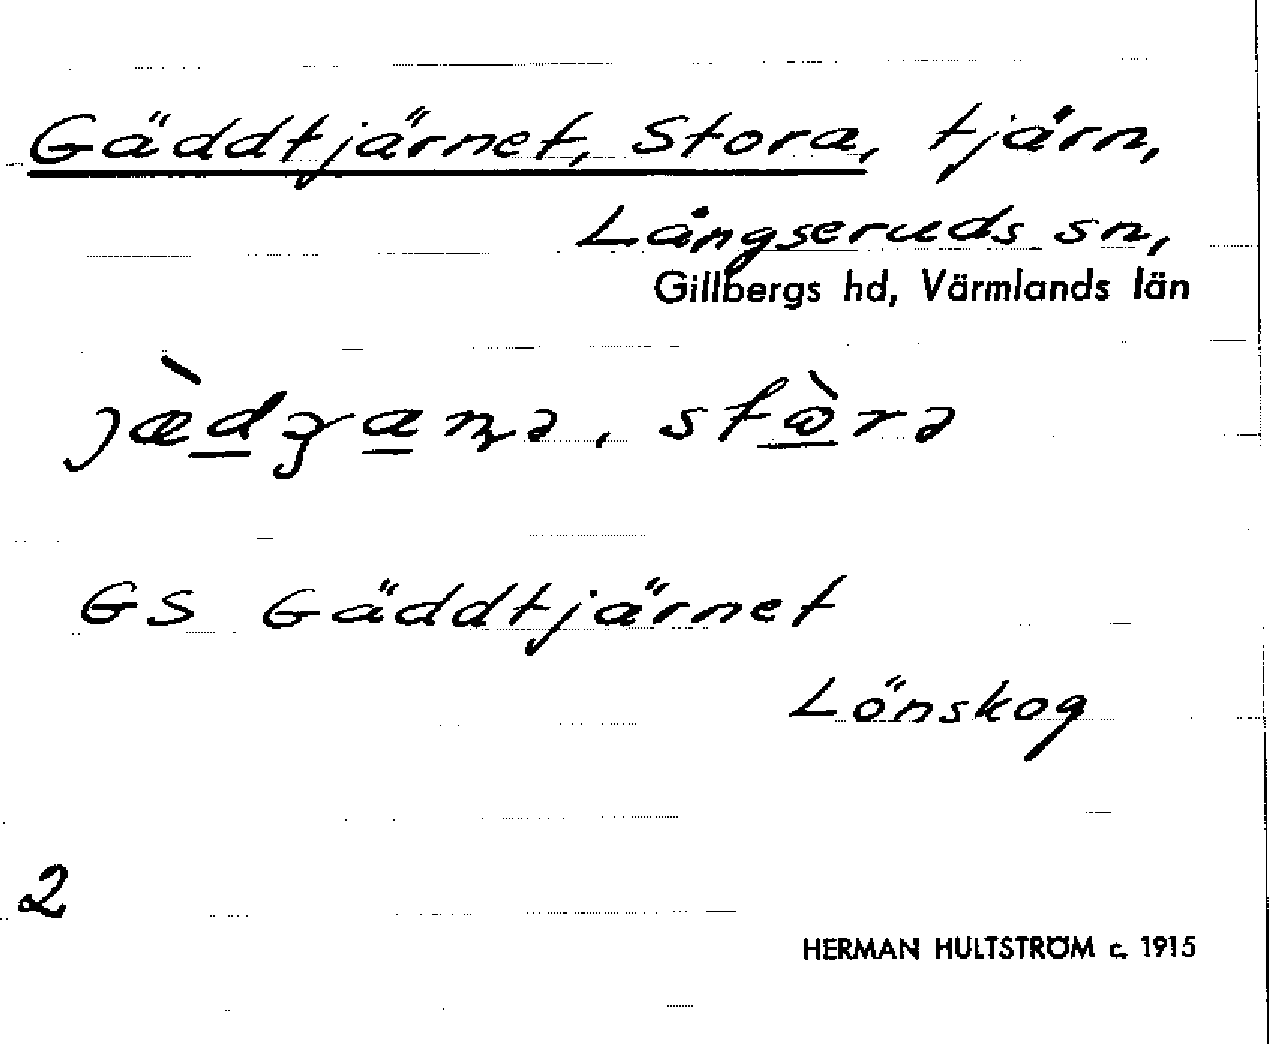 Gäddtjärnet, Stora, tjärn,
Långseruds sn,
Gillbergs hd, Värmlands län
GS Gäddtjärnet
Lönskog
2
HERMAN HULTSTRÖM c. 1915